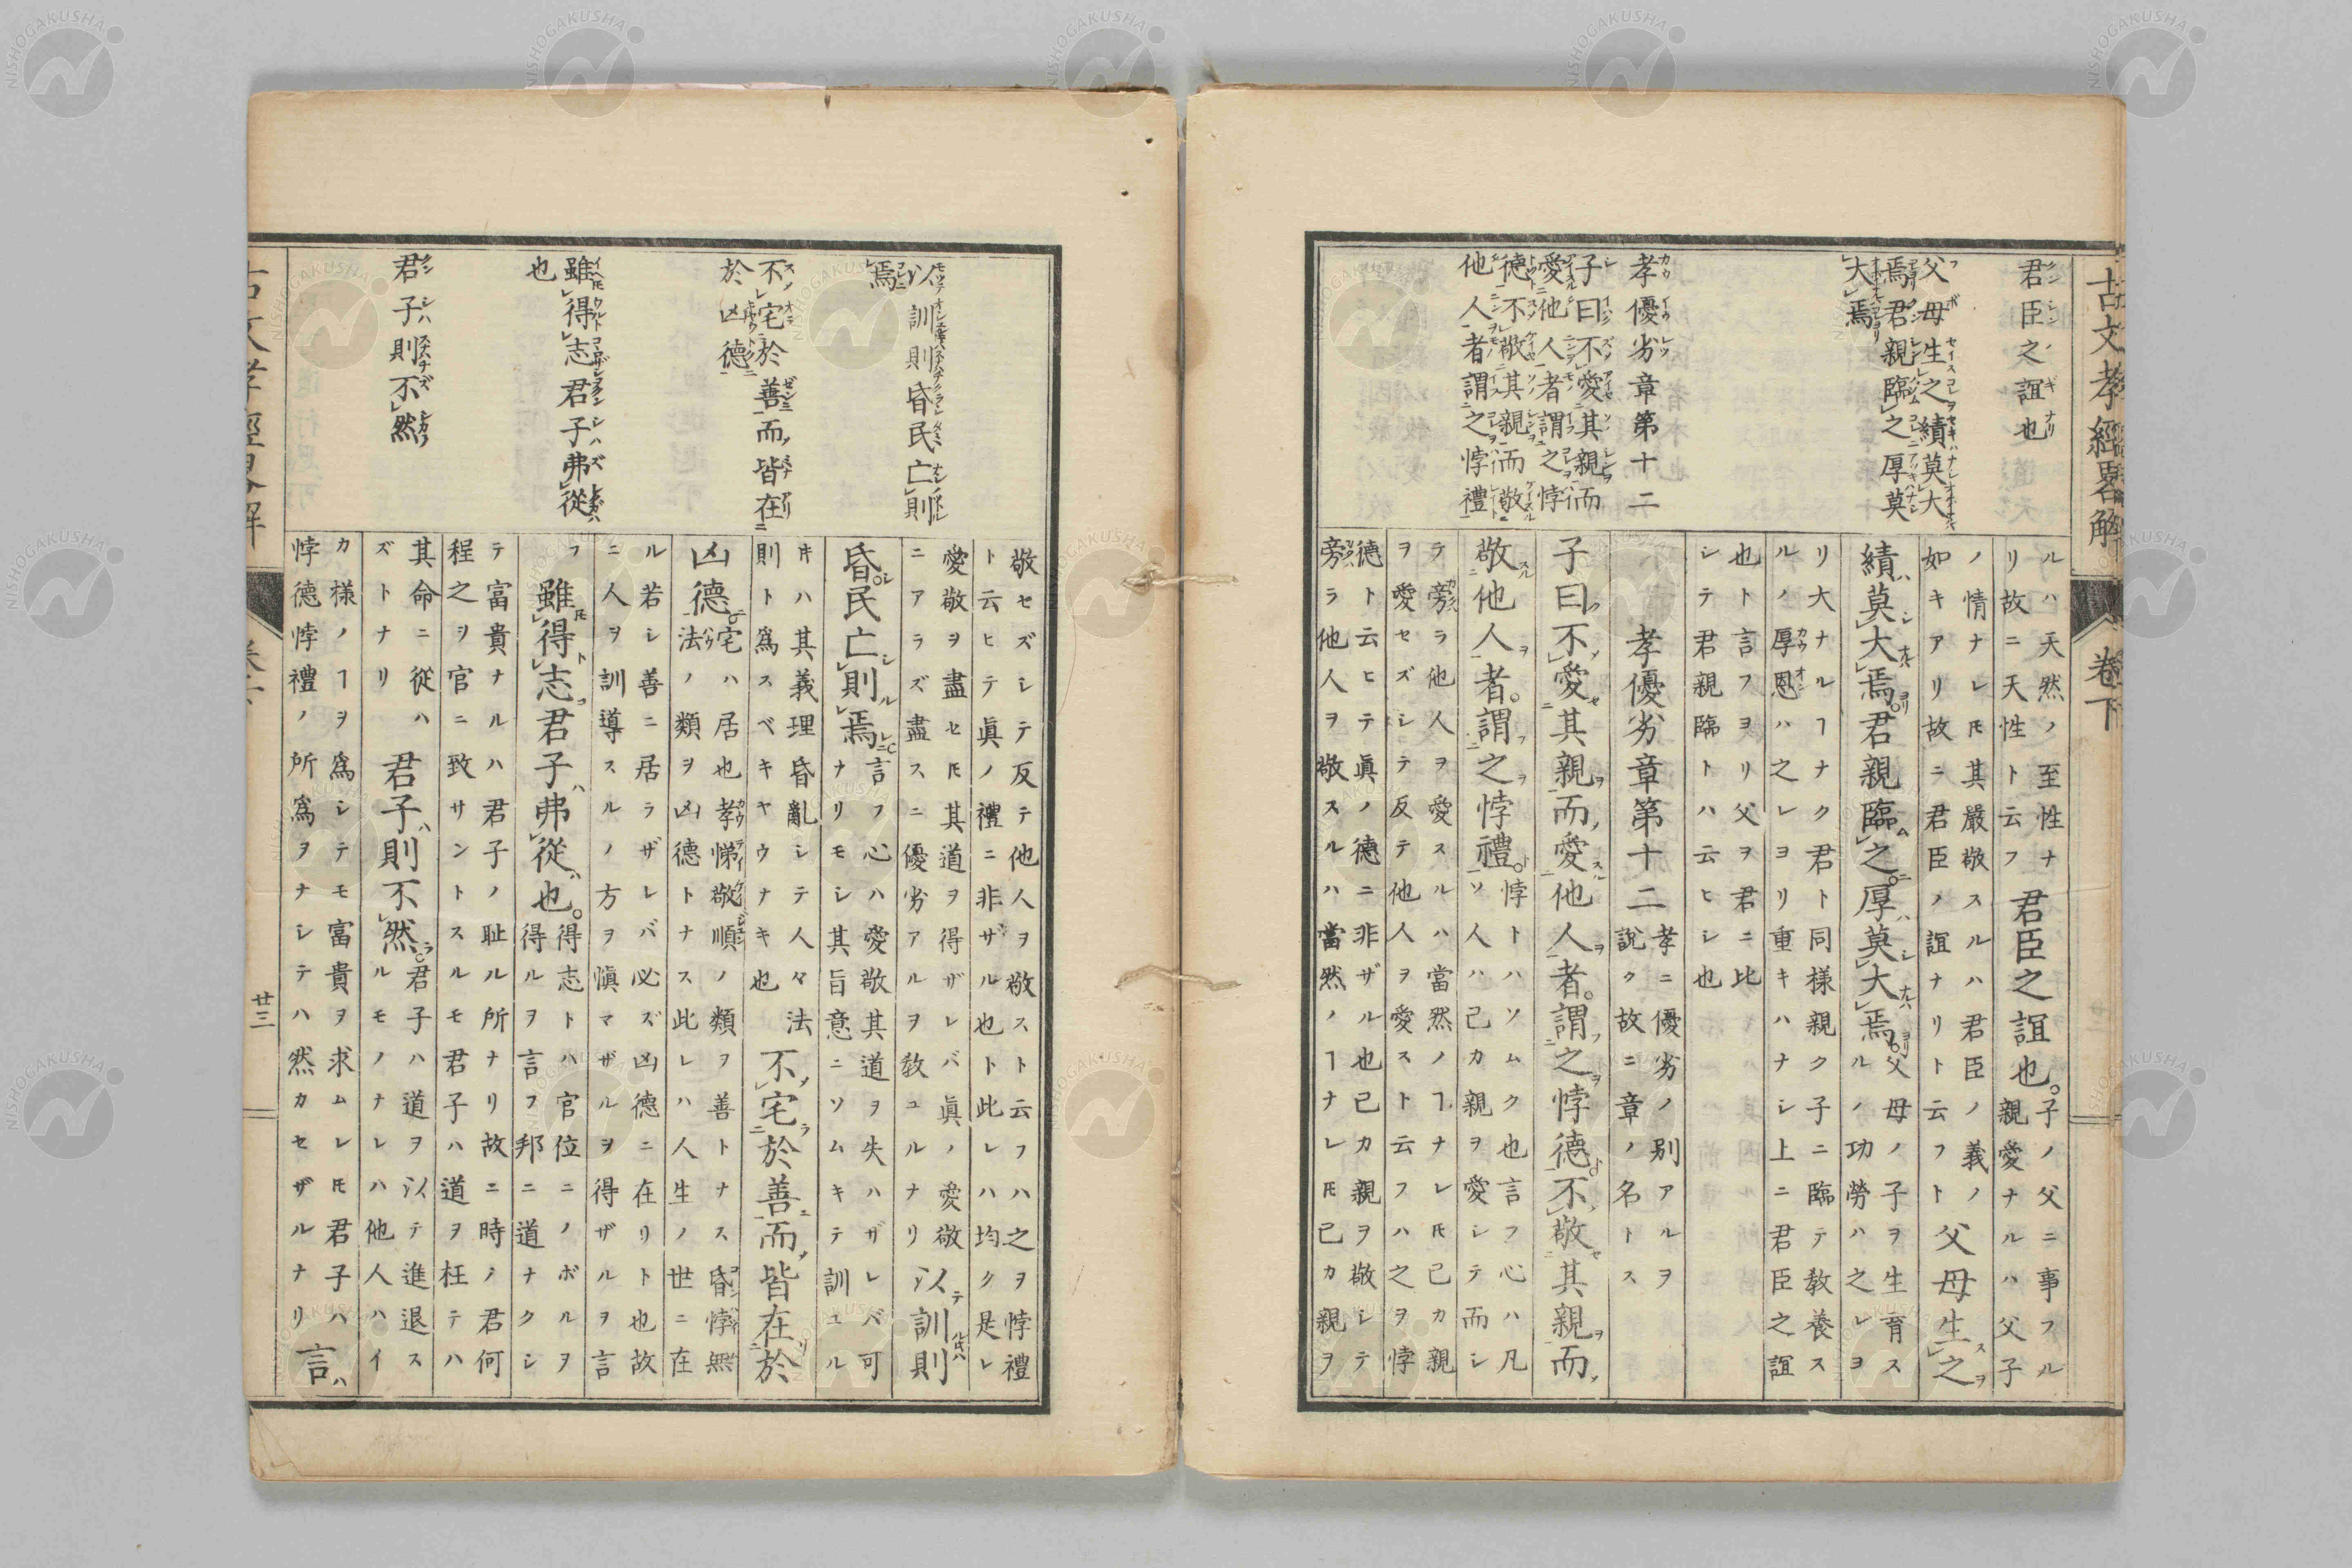 古文孝經畧解 卷下
君臣之誼也
父母生之績莫大
焉君親臨之厚莫
大焉
孝優劣章第十二
子曰不愛其親而
愛他人者謂之悖
德不敬其親而敬
他人者謂之悖禮
ルハ天然ノ至性ナ
リ故ニ天性ト云フ
君臣之誼也。
子ノ父ニ事フル
親愛ナルハ父子
ノ情ナレ𪜈其嚴敬スルハ君臣ノ義ノ
如キアリ故ニ君臣ノ誼ナリト云フト
父母生之
績莫大焉。君親臨之。厚莫大焉。
父母ノ子ヲ生育ス
ルノ功勞ハ之レヨ
リ大ナルヿナク君ト同樣親ク子ニ臨テ教養ス
ルノ厚恩ハ之レヨリ重キハナシ上ニ君臣之誼
也ト言フヨリ父ヲ君ニ比
シテ君親臨トハ云ヒシ也
孝優劣章第十二
孝ニ優劣ノ別アルヲ
說ク故ニ章ノ名トス
子曰不愛其親而愛他人者。謂之悖德。不敬其親而
敬他人者。謂之悖禮。
悖トハソムク也言フ心ハ凡
ソ人ハ己カ親ヲ愛シテ而シ
テ旁ラ他人ヲ愛スルハ當然ノヿナレ𪜈己カ親
ヲ愛セズシテ反テ他人ヲ愛スト云フハ之ヲ悖
德ト云ヒテ眞ノ德ニ非ザル也己カ親ヲ敬シテ
旁ラ他人ヲ敬スルハ當然ノヿナレ𪜈己カ親ヲ
以訓則昏民亡則
焉
不宅於善而皆在
於凶德
雖得志君子弗從
也
君子則不然
敬セズシテ反テ他人ヲ敬スト云フハ之ヲ悖禮
ト云ヒテ眞ノ禮ニ非サル也ト此レハ均ク是レ
愛敬ヲ盡セ𪜈其道ヲ得ザレバ眞ノ愛敬
ニアラズ盡スニ優劣アルヲ敎ユルナリ
以訓則
昏。民亡則焉。
言フ心ハ愛敬其道ヲ失ハザレバ可
ナリモシ其旨意ニソムキテ訓ユル
キハ其義理昏亂シテ人々法
則ト爲スベキヤウナキ也
不宅於善而皆在於
凶德。
宅ハ居也孝悌敬順ノ類ヲ善トナス昏悖無
法ノ類ヲ凶德トナス此レハ人生ノ世ニ在
ル若シ善ニ居ラザレバ必ズ凶德ニ在リト也故
ニ人ヲ訓導スルノ方ヲ愼マザルヲ得ザルヲ言
フ
雖得志君子弗從也。
得志トハ官位ニノボルヲ
得ルヲ言フ邦ニ道ナクシ
テ富貴ナルハ君子ノ耻ル所ナリ故ニ時ノ君何
程之ヲ官ニ致サントスルモ君子ハ道ヲ枉テハ
其命ニ從ハ
ズトナリ
君子則不然。
君子ハ道ヲ以テ進退ス
ルモノナレハ他人ハイ
カ樣ノヿヲ爲シテモ富貴ヲ求ムレ𪜈君子ハ
悖德悖禮ノ所爲ヲナシテハ然カセザルナリ
言
廿三